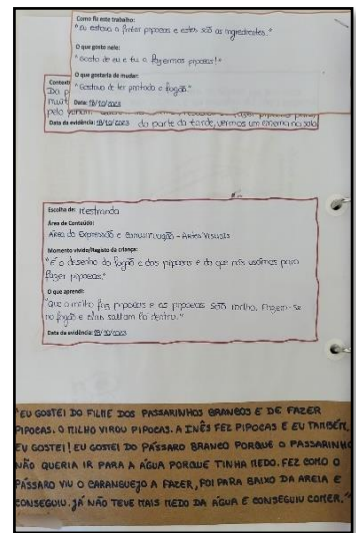 Como fiz este trabalho:
"Eu estava a fazer pipocas e estes são os ingredientes."
O que gosto nele:
"Gosto de eu e tu a fazermos pipocas!"
O que gostaria de mudar:
"Gostava de ter pintado o fogão"
Data:
Data da evidência: da parte da tarde, vimos um cinema na sala
Escolha de: Mestranda
Área de Conteúdo:
Área de Expressão e Comunicação - Artes Visuais
Momento vivido/Registo da criança:
"É o desenho do fogão e das pipocas e do que nós usámos para
fazer pipocas."
O que aprendi:
"Que o milho faz pipocas e as pipocas são milho. Fazem-se
no fogão e elas saltam lá dentro."
Data da evidência:
"EU GOSTEI DO FILME DOS PASSARINHOS BRANCOS E DE FAZER
PIPOCAS. O MILHO VIROU PIPOCAS. A INÊS FEZ PIPOCAS E EU TAMBÉM.
EU GOSTEI! EU GOSTEI DO PÁSSARO BRANCO PORQUE O PASSARINHO
NÃO QUERIA IR PARA A ÁGUA PORQUE TINHA MEDO. FEZ COMO O
PÁSSARO VIU O CARANGUEJO A FAZER, FOI PARA BAIXO DA AREIA E
CONSEGUIU. JÁ NÃO TEVE MAIS MEDO DA ÁGUA E CONSEGUIU COMER."